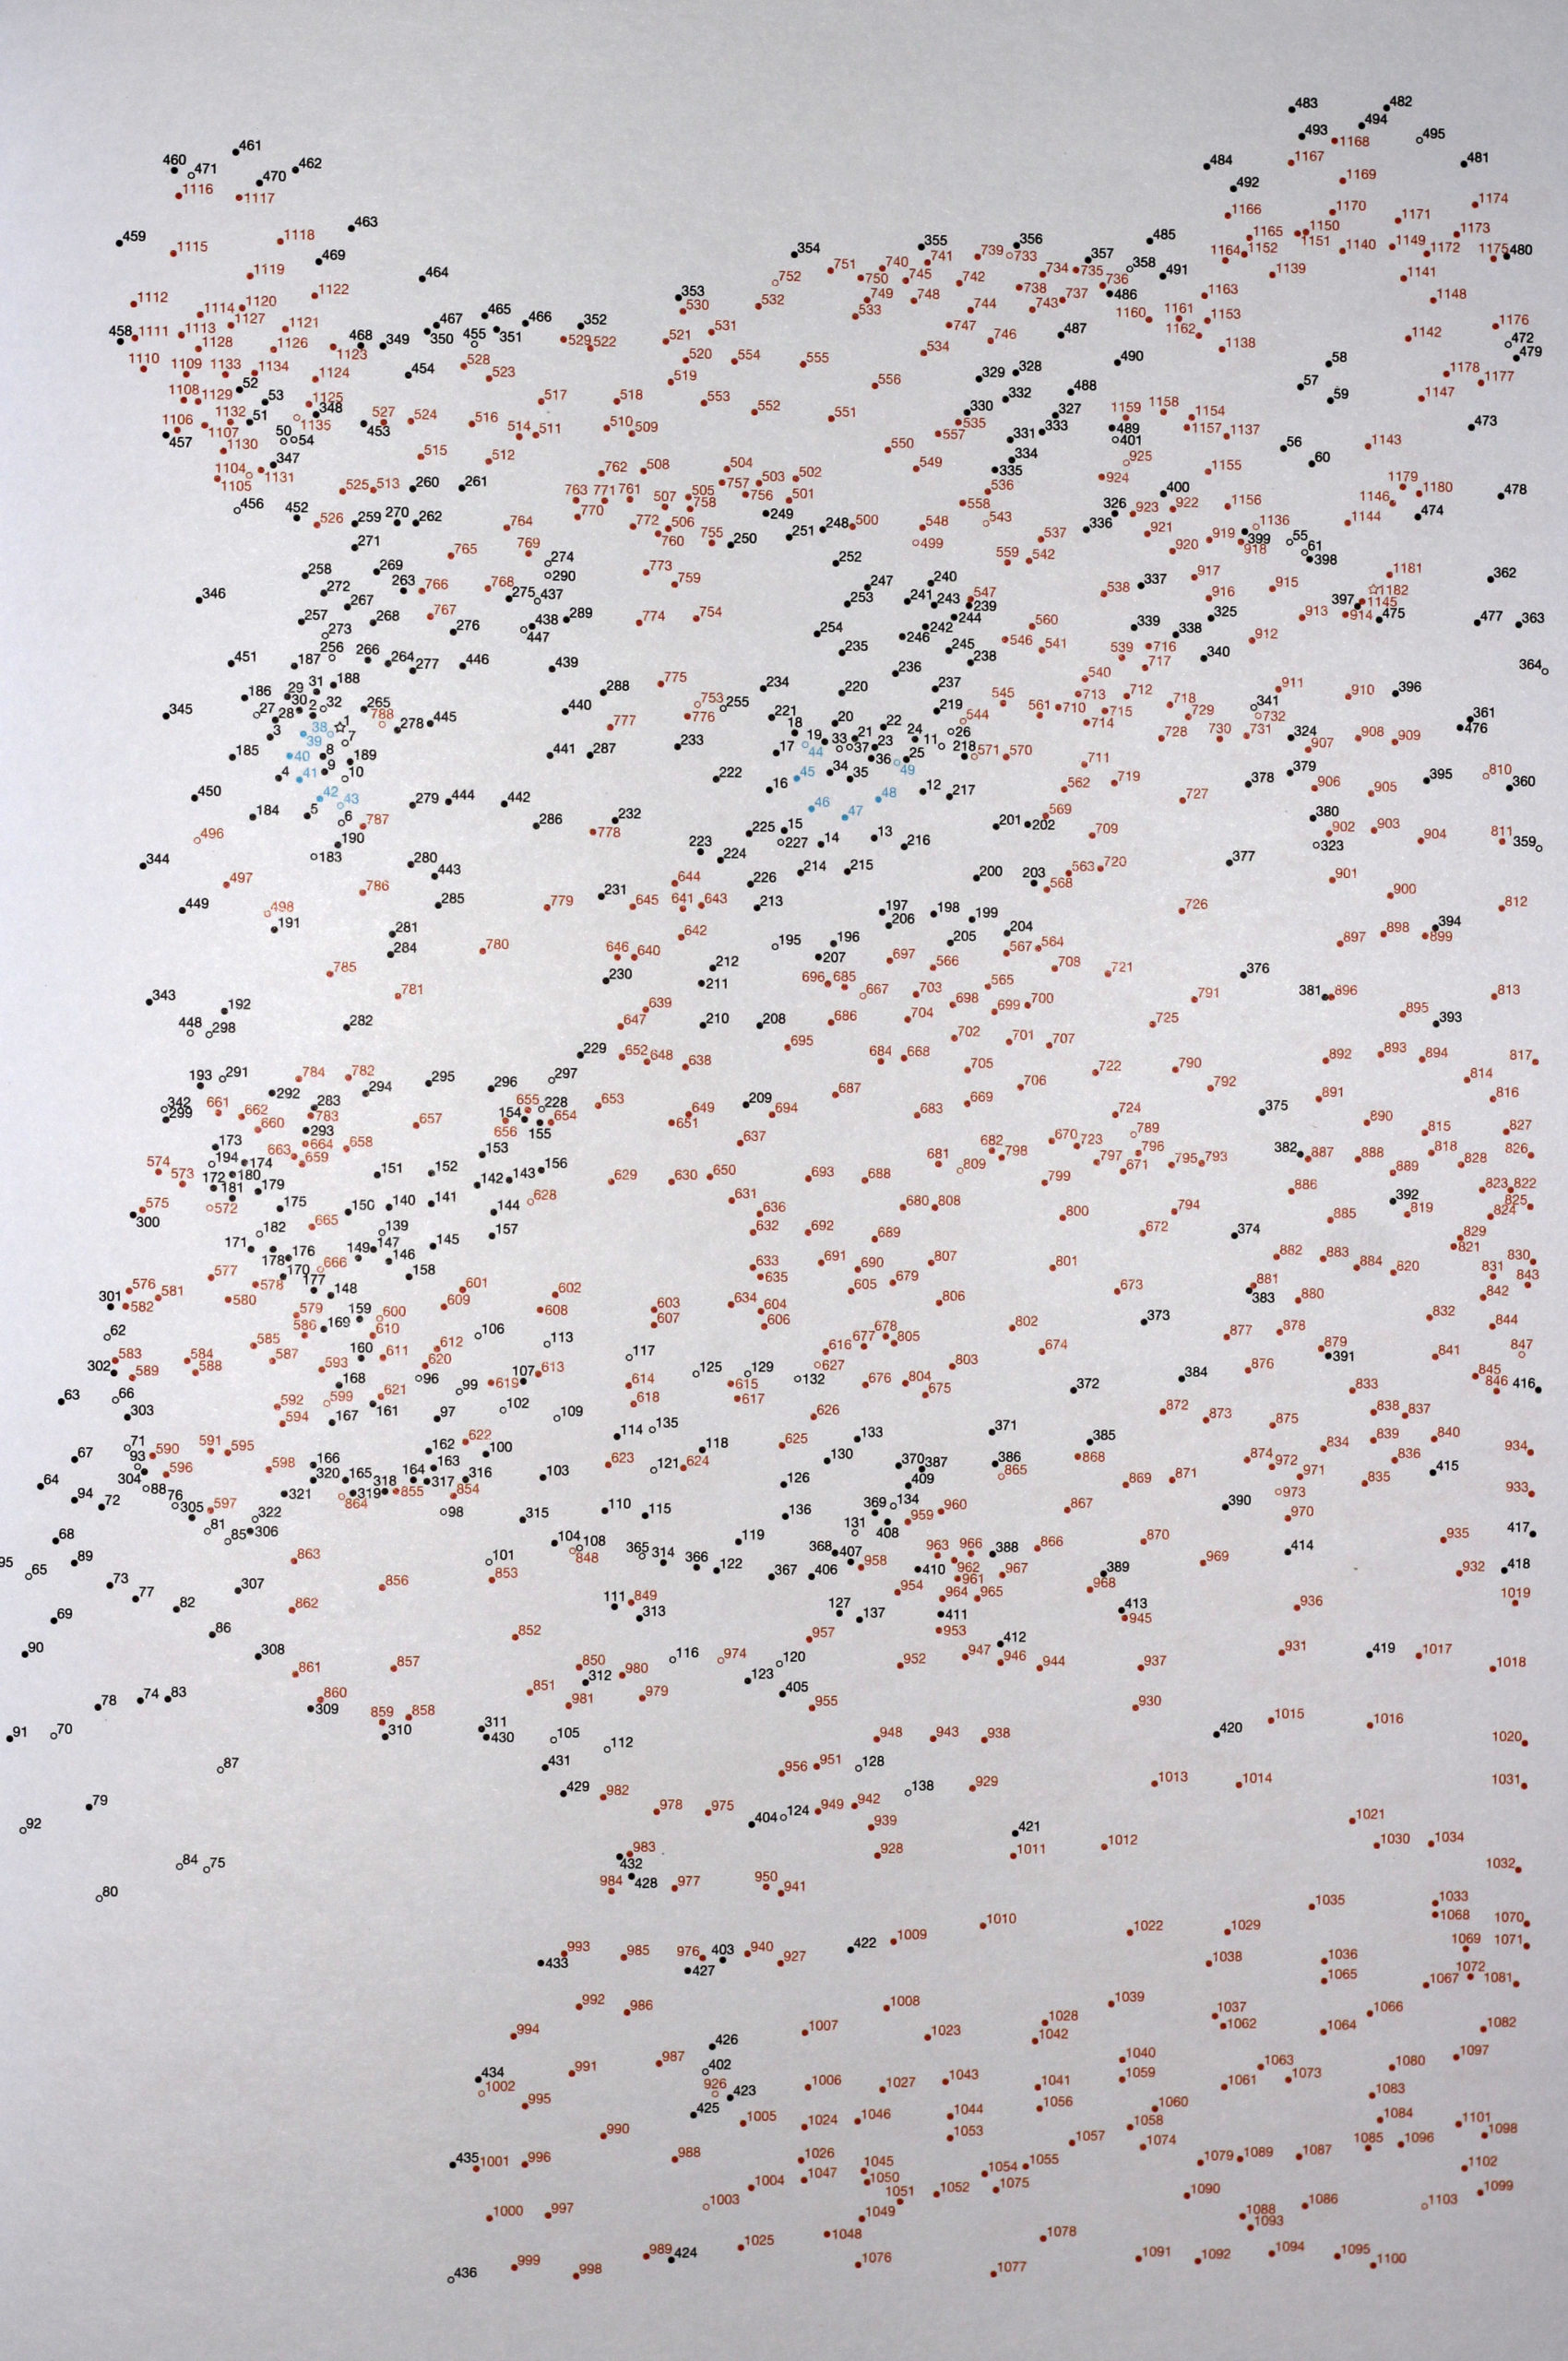 483 482
493 494 495
461 1168
460 471 462 484 1167 481
470 492 1169
1116 1117 1174
463 1166 1170 1171
459 1118 354 355 356 485 1165 1150 1173
1115 469 739 733 357 1164 1152 1151 1140 1149 1172 1175 480
1119 464 752 751 740 741 734 735 358 491 1139 1141
1112 1120 1122 353 750 745 742 738 737 736 486 1163 1148
1114 465 530 532 749 748 744 743 1161
458 1111 1113 1127 1121 467 466 352 531 533 747 487 1160 1162 1153 1176
1128 1126 468 349 350 455 351 529 522 521 534 746 1138 1142 472
1110 1109 1133 1134 1123 528 520 554 555 490 58 479
1108 52 1124 454 523 519 556 329 328 488 57 1178 1177
1129 53 1125 517 518 553 332 59 1147
1106 1132 51 348 527 524 516 552 551 330 327 1159 1158 1154
1107 50 54 1135 453 514 511 510 509 535 333 489 1157 1137 473
457 1130 347 515 557 331 401 56 1143
1104 1131 512 762 508 504 550 549 334 925 60
1105 525 513 260 261 763 771 761 757 503 502 335 924 1155 1179
456 452 507 505 756 501 536 326 400 1146 1180 478
526 259 270 262 764 770 772 506 758 249 558 543 923 922 1156 474
271 769 760 755 250 251 248 500 548 537 336 921 919 1136 399 55 1144
765 274 499 559 542 920 918 61 398
258 269 290 773 252 1181
272 263 766 768 275 437 759 247 240 547 538 337 917 915 362
346 267 253 241 243 239 916 1182 397 1145
257 268 767 438 289 774 754 244 560 325 913 914 475 477 363
273 276 447 254 246 242 339 338 912
256 266 264 277 446 439 235 245 546 541 539 716 340
451 187 236 238 717 364
188 775 234 237 540 911
186 29 31 288 753 220 545 713 712 718 910 396
345 27 30 2 32 265 278 445 440 776 255 221 219 561 710 715 729 341 732 361
28 38 1 788 777 18 20 22 544 714 476
3 39 7 233 19 33 21 24 26 728 730 731 324 908 909
185 40 8 189 441 287 17 44 37 23 11 218 571 570 907
9 222 45 34 36 25 49 711 379
4 41 10 16 35 719 378 906 395 810 360
450 42 43 279 444 442 46 48 12 217 562 727 905
184 5 6 232 47 201 202 569 380
787 286 225 15 13 709 902 903
496 190 778 223 227 14 216 904 811 359
344 183 280 224 214 215 563 720 377 323
497 443 644 226 200 203 901
786 231 568 900
449 498 285 779 645 641 643 213 197 198 199 726 812
191 281 642 206 204 898 394
284 780 646 640 195 196 205 567 564 897 899
785 212 207 697 566 708 721 376
781 230 211 696 685 667 703 565 791 381 896 813
343 192 639 698 699 700 895
448 298 282 647 210 208 686 704 725 393
229 652 648 695 684 668 702 701 707 892 893 894 817
193 291 784 782 295 296 297 638 705 722 790 814
292 294 687 706 792 891 816
342 661 283 655 228 653 209 669 724 375
299 662 660 783 657 154 654 649 694 683 890
173 293 664 658 656 155 651 637 789 815 827
574 194 174 663 659 151 152 153 682 798 670 723 796 382 887 888 818 826
573 172 180 179 142 143 156 629 630 650 693 688 681 809 797 671 795 793 886 889 828
575 181 175 150 140 141 144 628 631 680 808 799 800 794 392 823 822
300 572 182 665 139 157 636 672 885 819 824 825
171 176 149 147 145 632 692 689 374 829
178 170 666 146 158 633 691 690 807 801 882 883 884 820 821 830
577 578 177 148 601 602 635 605 679 673 881 831 843
576 581 580 609 608 603 634 604 806 383 880 842
301 582 579 169 159 600 607 606 373 832
62 586 610 106 113 678 805 802 877 878 844
583 584 585 587 593 160 611 612 117 616 677 803 674 879 391 841 847
302 589 588 620 107 613 125 129 627 876 384 845
63 66 168 96 99 619 614 615 132 676 804 675 372 833 846 416
303 592 599 621 618 617
594 167 161 97 102 109 626 872 873 838 837
71 591 595 162 622 114 135 118 625 133 371 385 875 839 840
67 93 590 163 100 623 121 624 130 370 387 386 868 874 972 834 836 934
64 304 596 598 166 165 164 317 316 103 126 409 865 869 871 971 835 415 933
94 88 76 320 321 319 318 855 854
72 305 597 322 864 98 315 110 115 136 369 134 960 867 390 973 970
68 81 85 306 104 108 119 131 408 959 866 870 935 417
95 65 89 863 101 848 365 314 366 122 367 368 407 406 958 963 966 388 969 414 932 418
73 77 307 856 853 410 962 961 967 389 968
69 82 862 111 849 313 127 137 954 964 965 413 936 1019
86 852 411 945
90 308 116 974 957 953 412 931 419 1017
861 857 850 312 980 120 952 947 946 944 937 1018
78 74 83 860 309 859 858 851 981 979 123 405 955 930
91 70 310 311 430 105 112 948 943 938 420 1015 1016 1020
87 431 956 951 128 1013 1014 1031
79 429 982 978 975 138 929
92 404 124 949 942 939 421 1021
84 75 983 432 928 1011 1012 1030 1034 1032
80 984 428 977 950 941
1010 1022 1029 1035 1033 1068 1070
993 433 985 976 403 940 927 422 1009 1038 1036 1069 1071
427 1065 1067 1072 1081
992 986 1008 1039 1037 1066
994 426 1007 1023 1028 1042 1062 1064 1082
434 991 987 402 1043 1040 1063 1080 1097
1002 995 926 423 1006 1027 1041 1059 1061 1073 1083
990 425 1005 1024 1046 1044 1056 1058 1060 1084 1101
435 1001 996 988 1026 1045 1053 1054 1055 1057 1074 1079 1089 1087 1085 1096 1098
1004 1047 1050 1052 1075 1090 1102 1099
1000 997 1003 1051 1049 1088 1086 1103
999 989 424 1025 1048 1078 1093
436 998 1076 1077 1091 1092 1094 1095 1100